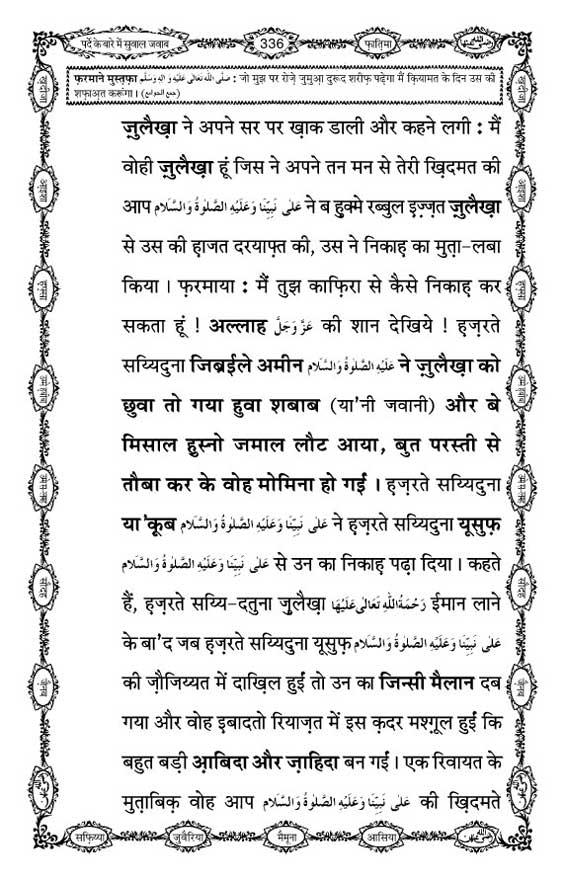 पर्दे के बारे में सुवाल जवाब
336
फ़ातिमा
फ़रमाने मुस्तफ़ा صَلَّى اللهُ تَعَالٰى عَلَيْهِ وَاٰلِهٖ وَسَلَّم : जो मुझ पर रोज़े जुमुआ दुरूद शरीफ़ पढ़ेगा मैं क़ियामत के दिन उस की
शफ़ाअत करूंगा । (جمع الجوامع)
ज़ुलैख़ा ने अपने सर पर ख़ाक डाली और कहने लगी : मैं
वोही ज़ुलैख़ा हूं जिस ने अपने तन मन से तेरी ख़िदमत की
आप عَلٰى نَبِيِّنَا وَعَلَيْهِ الصَّلٰوةُ وَالسَّلَام ने ब हुक्मे रब्बुल इज़्ज़त ज़ुलैख़ा
से उस की हाजत दरयाफ़्त की, उस ने निकाह का मुता-लबा
किया । फ़रमाया : मैं तुझ काफ़िरा से कैसे निकाह कर
सकता हूं ! अल्लाह عَزَّوَجَلَّ की शान देखिये ! हज़रते
सय्यिदुना जिब्रईले अमीन عَلَيْهِ الصَّلٰوةُ وَالسَّلَام ने ज़ुलैख़ा को
छुवा तो गया हुवा शबाब (या'नी जवानी) और बे
मिसाल हुस्नो जमाल लौट आया, बुत परस्ती से
तौबा कर के वोह मोमिना हो गई । हज़रते सय्यिदुना
या'क़ूब عَلٰى نَبِيِّنَا وَعَلَيْهِ الصَّلٰوةُ وَالسَّلَام ने हज़रते सय्यिदुना यूसुफ़
عَلٰى نَبِيِّنَا وَعَلَيْهِ الصَّلٰوةُ وَالسَّلَام से उन का निकाह पढ़ा दिया । कहते
हैं, हज़रते सय्यि-दतुना ज़ुलैख़ा رَحْمَةُ اللهِ تَعَالٰى عَلَيْهَا ईमान लाने
के बा'द जब हज़रते सय्यिदुना यूसुफ़ عَلٰى نَبِيِّنَا وَعَلَيْهِ الصَّلٰوةُ وَالسَّلَام
की ज़ौजिय्यत में दाख़िल हुईं तो उन का जिन्सी मैलान दब
गया और वोह इबादतो रियाज़त में इस क़दर मश्ग़ूल हुईं कि
बहुत बड़ी आ़बिदा और ज़ाहिदा बन गईं । एक रिवायत के
मुताबिक़ वोह आप عَلٰى نَبِيِّنَا وَعَلَيْهِ الصَّلٰوةُ وَالسَّلَام की ख़िदमते
सफ़िय्या
जुवैरिया
मैमूना
आसिया